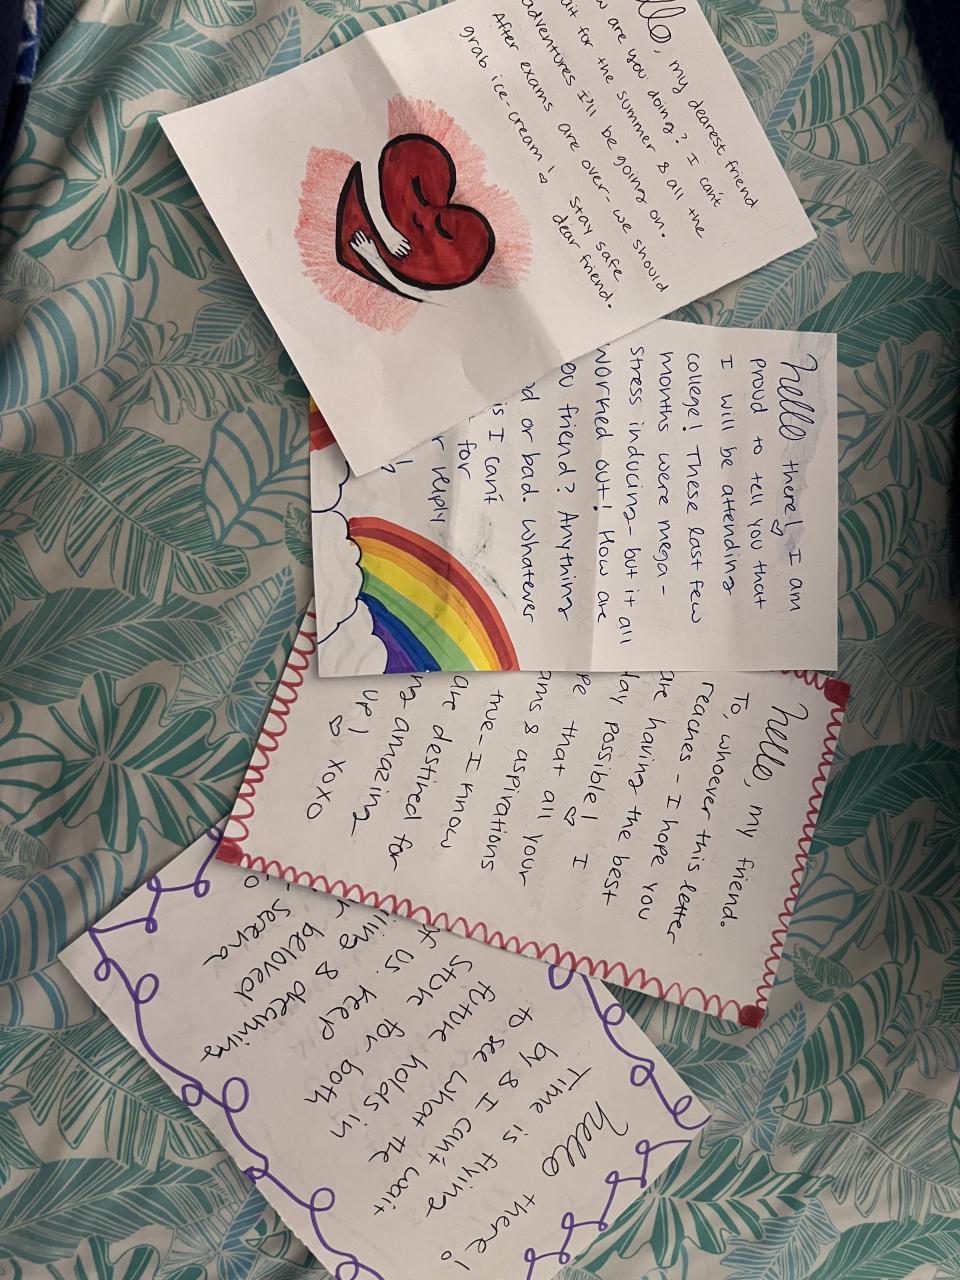 hello, my dearest friend
are you doing? I can't
for the summer & all the
adventures I'll be going on.
After exams are over- we should
grab ice-cream! ♡ stay safe
dear friend.
hello there! ♡ I am
proud to tell you that
I will be attending
college! These last few
months were mega-
stress inducing- but it all
worked out! How are
you friend? Anything
or bad. Whatever
is I can't
for
reply
hello, my friend.
To, whoever this letter
reaches - I hope you
are having the best
day possible! ♡ I
that all your
& aspirations
true- I know
are destined for
amazing
up! ♡ xoxo
hello there!
Time is flying
by & I can't wait
to see what the
future holds in
store for both
of us. Keep
& dreaming
beloved
Serena